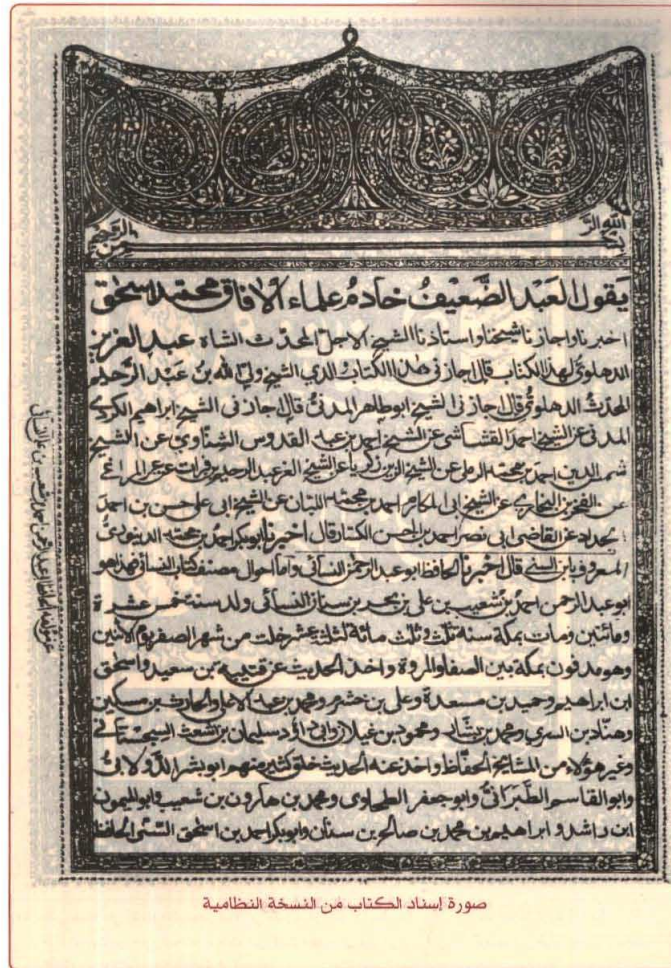 بسم الله الرحمن الرحيم
يقول العبد الضعيف خادم علماء الافاق محمد اسحق
اخبرنا واجازنا شيخنا واستاذنا الشيخ الاجل المحدث الشاه عبد العزيز
الدهلوي لهذا الكتاب قال اجازنى هذا الكتاب والدي الشيخ ولي الله بن عبد الرحيم
المحدث الدهلوي قال اجازنى الشيخ ابو طاهر المدنى قال اجازنى الشيخ ابراهيم الكردي
المدنى عن الشيخ احمد القشاشى عن الشيخ احمد بن عبد القدوس الشناوي عن الشيخ
شمس الدين احمد بن محمد الرملى عن الشيخ الزين زكريا عن الشيخ العز عبد الرحيم بن فرات عن عمر المراغي
عن الفخر بن البخاري عن الشيخ ابى المكارم احمد بن محمد اللبان عن الشيخ ابى على حسن بن احمد
الحداد عن القاضى ابى نصر احمد بن الحسن الكسار قال اخبرنا ابو بكر احمد بن محمد الدينوري
المعروف بابن السني قال اخبرنا الحافظ ابو عبد الرحمن النسائى واما احوال مصنف كتاب النسائى فهذا هو
ابو عبد الرحمن احمد بن شعيب بن على بن بحر بن سنان النسائى ولد سنة خمس عشرة
ومائتين ومات بمكة سنة ثلث وثلث مائة لثلث عشر خلت من شهر الصفر يوم الاثنين
وهو مدفون بمكة بين الصفا والمروة واخذ الحديث عن قتيبه بن سعيد واسحق
ابن ابراهيم وحميد بن مسعدة وعلى بن خشرم ومحمد بن عبد الاعلى والحارث بن مسكين
وهناد بن السري ومحمد بن بشار ومحمود بن غيلان وابى داؤد سليمان بن اشعث السجستانى
وغير هؤلاء من المشايخ الحفاظ واخذ عنه الحديث خلق كثير منهم ابو بشر الدولابى
وابو القاسم الطبرانى وابو جعفر الطحاوى ومحمد بن هارون بن شعيب وابو الميمون
ابن راشد وابراهيم بن محمد بن صالح بن سنان وابو بكر احمد بن اسحق السنى الحافظ
صورة إسناد الكتاب من النسخة النظامية